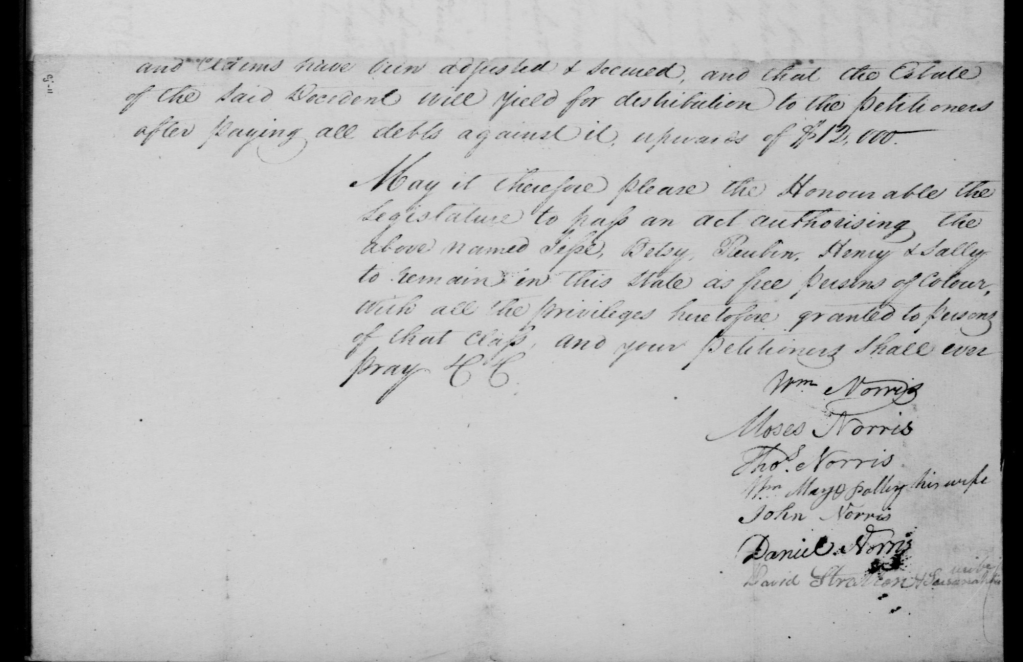 and claims have been adjusted & secured, and that the Estate
of the said Decident will yield for distribution to the petitioners
after paying all debts against it, upwards of $12,000.
May it therefore please the Honourable the
Legislature to pass an act authorising the
above named Jesse, Betsy, Reubin, Henry & Sally
to remain in this state as free persons of Colour,
with all the privileges heretofore granted to persons
of that class, and your petitioners shall ever
pray &C &C
Wm Norris
Moses Norris
Thos. Norris
Wm Mayo & Polley his wife
John Norris
Daniel Norris
David Stratton &